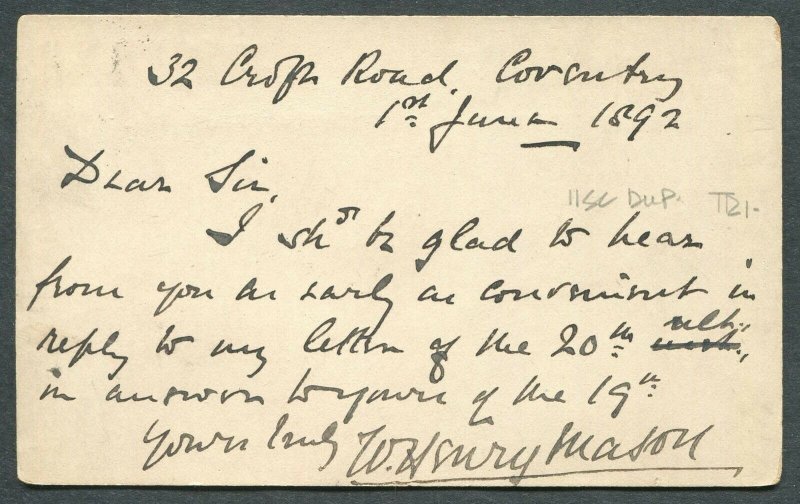 32 Croft Road, Coventry
1st June 1892
Dear Sir,
11SC DUP. T21.
I shd be glad to hear
from you as early as convenient in
ult.,
reply to my letter of the 20th inst.,
in answer to yours of the 19th
Yours truly W. Henry Mason